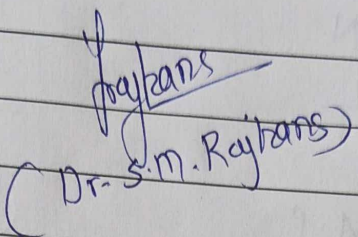 Rajhans
(Dr. S.M. Rajhans)